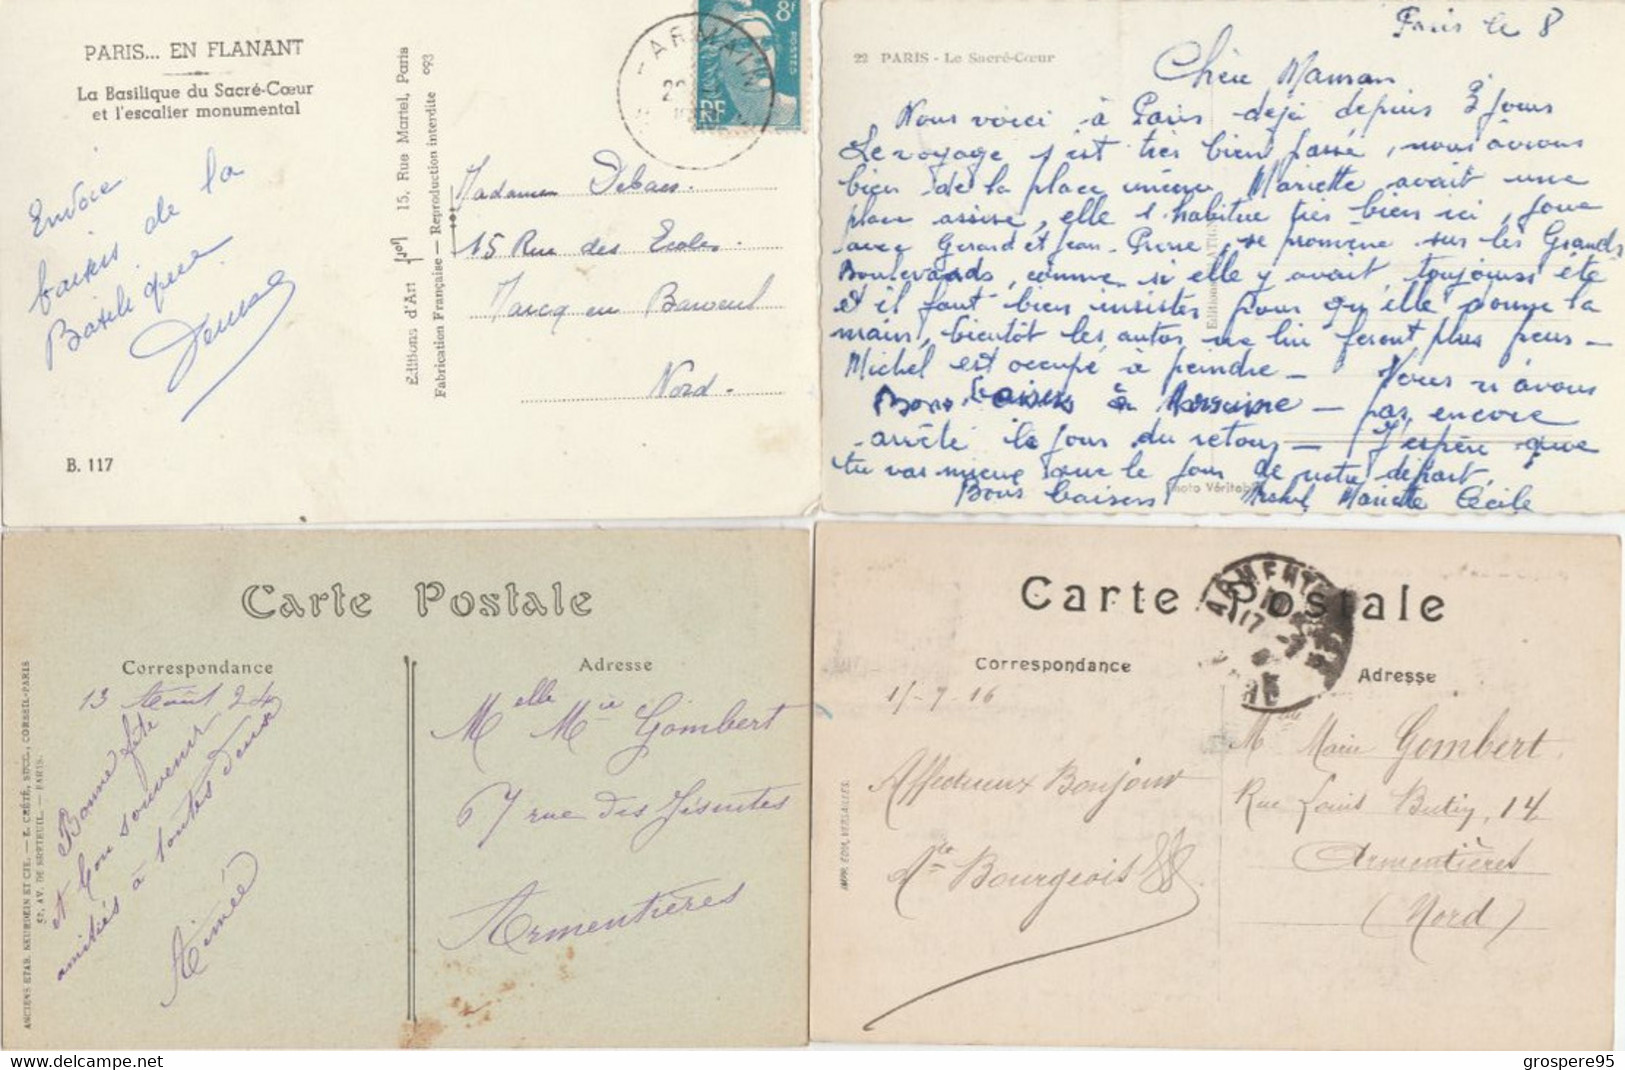 PARIS... EN FLANANT
La Basilique du Sacré-Cœur
et l'escalier monumental
Envoie
baisers de la
Basilique
B. 117
Editions d'Art 15, Rue Martel, Paris
Fabrication Française — Reproduction interdite 093
8f
POSTES
RF
Madame Debaes.
15 Rue des Ecoles.
Marcq en Baroeul
Nord.
Paris le 8
22 PARIS - Le Sacré-Cœur
Chère Maman
Nous voici à Paris deja depuis 3 jours
Le voyage s'est très bien passé, nous avons
bien de la place même Mariette avait une
place assise, elle s'habitue très bien ici, joue
avec Gerard et Jean-Pierre, se promène sur les Grands
Boulevards, comme si elle y avait toujours été
et il faut bien insister pour qu'elle donne la
main, bientôt les autos ne lui feront plus peur —
Michel est occupé à peindre — Nous n'avons
Bons baisers à — pas encore
arrêté le jour du retour — J'espère que
tu vas mieux que le jour de notre départ.
Bons baisers Michel Mariette Cécile
Carte Postale
Correspondance
Adresse
13 Août 24
Bonne fête
et bon souvenir
amitiés à toutes deux
Aimée
ANCIENS ETAB. NEURDEIN ET CIE. — E. CRÉTÉ, SUCC., CORBEIL-PARIS
52, AV. DE BRETEUIL. — PARIS.
Melle Mie Gombert
67 rue des Jésuites
Armentières
Carte Postale
Correspondance
Adresse
ARMENTI
17
1/-7-16
Affectueux Bonjour
Bourgeois
IMPR. EDIA VERSAILLES
Mlle Marie Gombert.
Rue Louis 14
Armentières
(Nord)
www.delcampe.net
grospere95